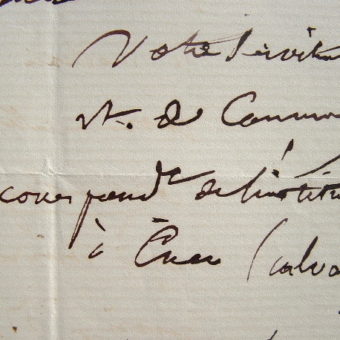 Votre Servit
A. de Caumon
correspondt de l'institu
à Caen (calva